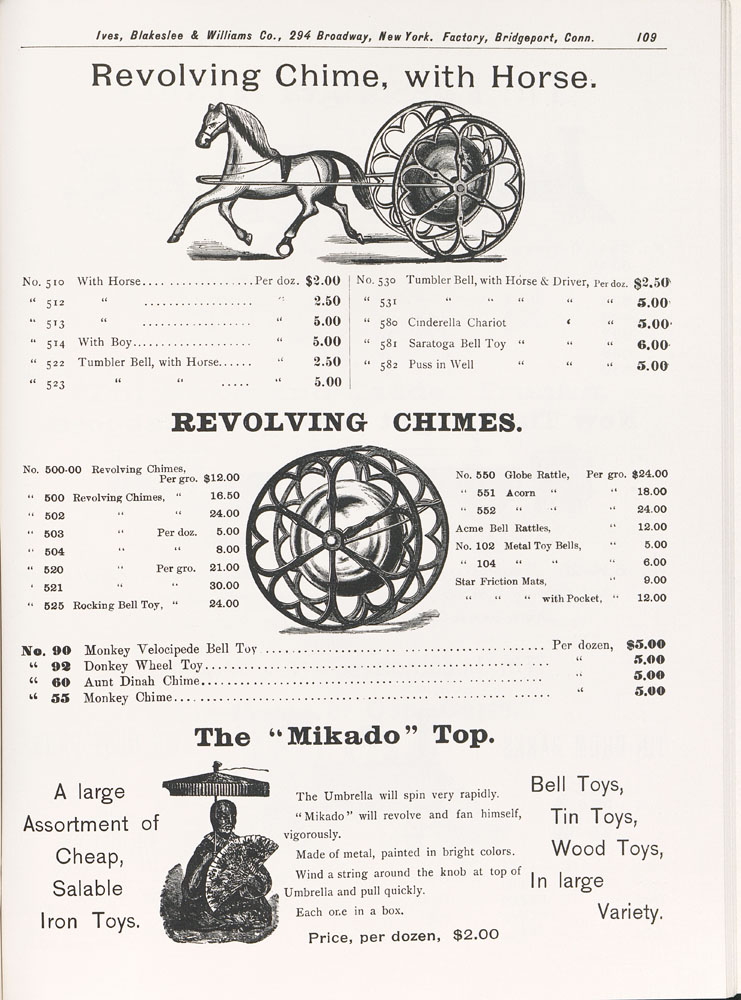 Ives, Blakeslee & Williams Co., 294 Broadway, New York. Factory, Bridgeport, Conn. 109
Revolving Chime, with Horse.
No. 510 With Horse.... ............... Per doz. $2.00
“ 512 “ ................... “ 2.50
“ 513 “ ................... “ 5.00
“ 514 With Boy..................... “ 5.00
“ 522 Tumbler Bell, with Horse...... “ 2.50
“ 523 “ “ ..... “ 5.00
No. 530 Tumbler Bell, with Horse & Driver, Per doz. $2.50
“ 531 “ “ “ “ “ 5.00
“ 580 Cinderella Chariot ‘ “ 5.00
“ 581 Saratoga Bell Toy “ “ “ 6.00
“ 582 Puss in Well “ “ “ 5.00
REVOLVING CHIMES.
No. 500-00 Revolving Chimes,
Per gro. $12.00
“ 500 Revolving Chimes, “ 16.50
“ 502 “ “ 24.00
“ 503 “ Per doz. 5.00
“ 504 “ “ 8.00
“ 520 “ Per gro. 21.00
‘ 521 “ “ 30.00
“ 525 Rocking Bell Toy, “ 24.00
No. 550 Globe Rattle, Per gro. $24.00
“ 551 Acorn “ “ 18.00
“ 552 “ “ “ 24.00
Acme Bell Rattles, “ 12.00
No. 102 Metal Toy Bells, “ 5.00
“ 104 “ “ “ 6.00
Star Friction Mats, “ 9.00
“ “ “ with Pocket, “ 12.00
No. 90 Monkey Velocipede Bell Toy ............................................. Per dozen, $5.00
“ 92 Donkey Wheel Toy....................................................... “ 5.00
“ 60 Aunt Dinah Chime....................................................... “ 5.00
“ 55 Monkey Chime........................................................... “ 5.00
The “Mikado” Top.
A large
Assortment of
Cheap,
Salable
Iron Toys.
The Umbrella will spin very rapidly.
“Mikado” will revolve and fan himself,
vigorously.
Made of metal, painted in bright colors.
Wind a string around the knob at top of
Umbrella and pull quickly.
Each one in a box.
Price, per dozen, $2.00
Bell Toys,
Tin Toys,
Wood Toys,
In large
Variety.